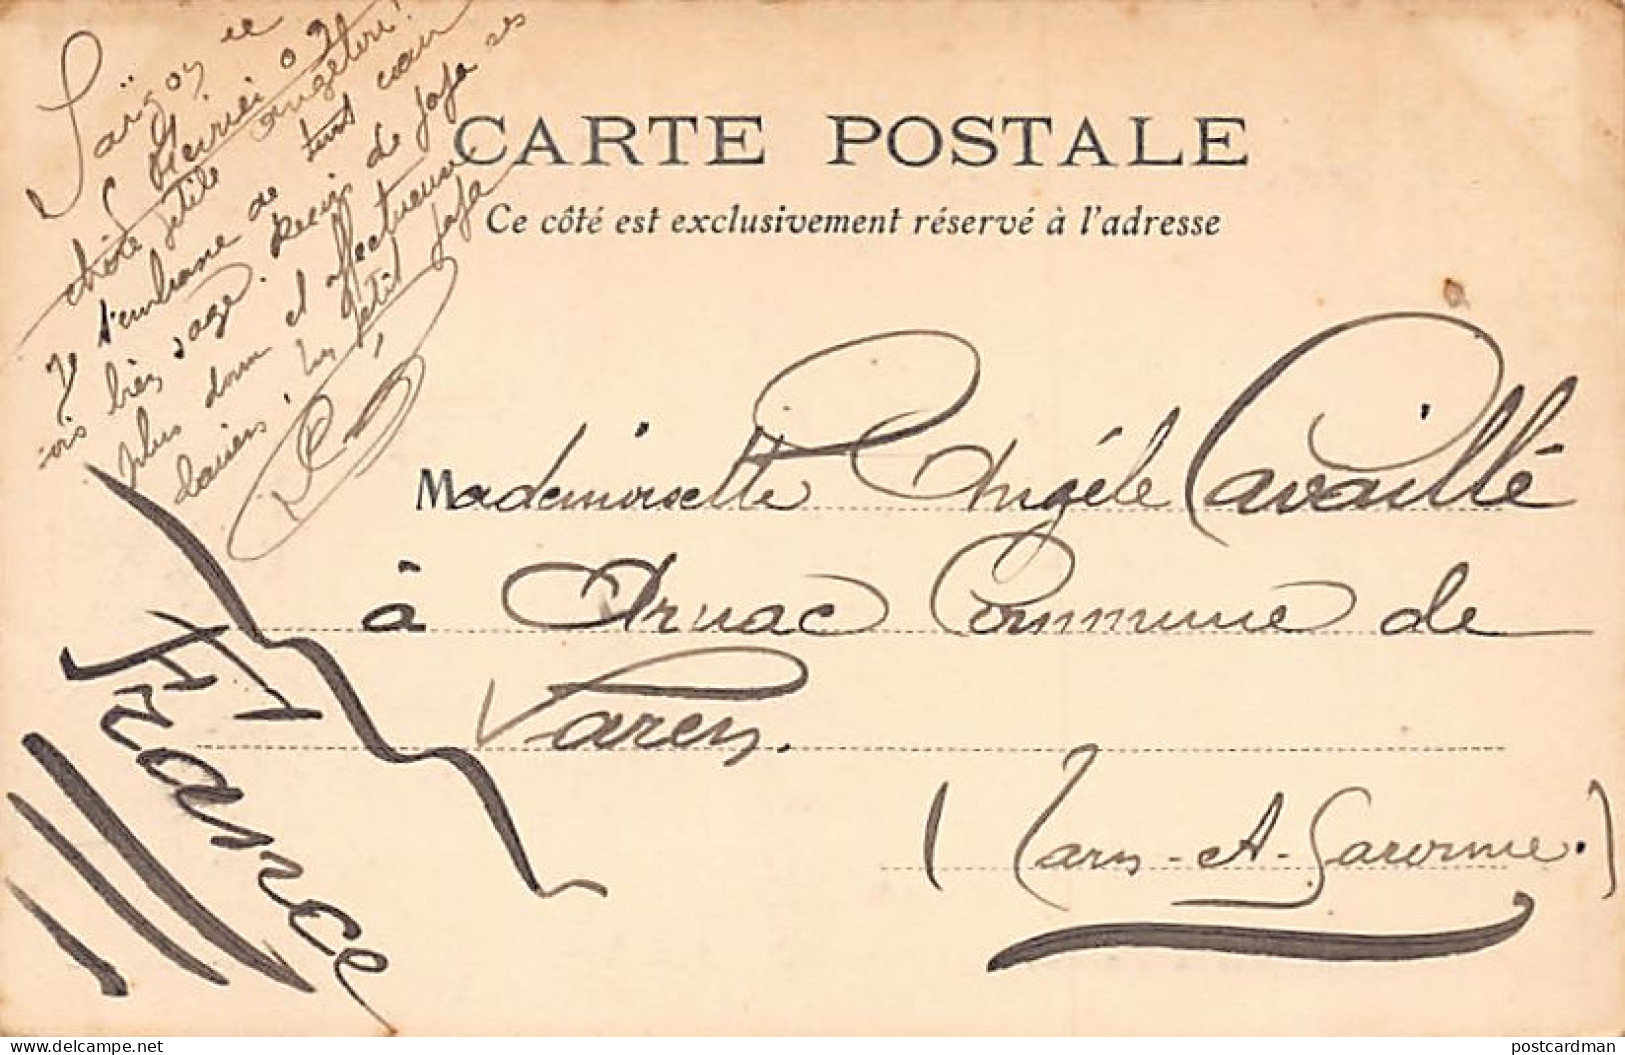 Saïgon le
6 février 09
chère petite Angèle!
Je t'embrasse de tout cœur
sois bien sage. Reçois de Jafa ses
plus doux et affectueux
baisers, ton petit Jafa
CARTE POSTALE
Ce côté est exclusivement réservé à l'adresse
Mademoiselle Angéle Cavaillé
à Arnac Commune de
Varen.
(Tarn-et-Garonne.)
France
delcampe.net
postcardman